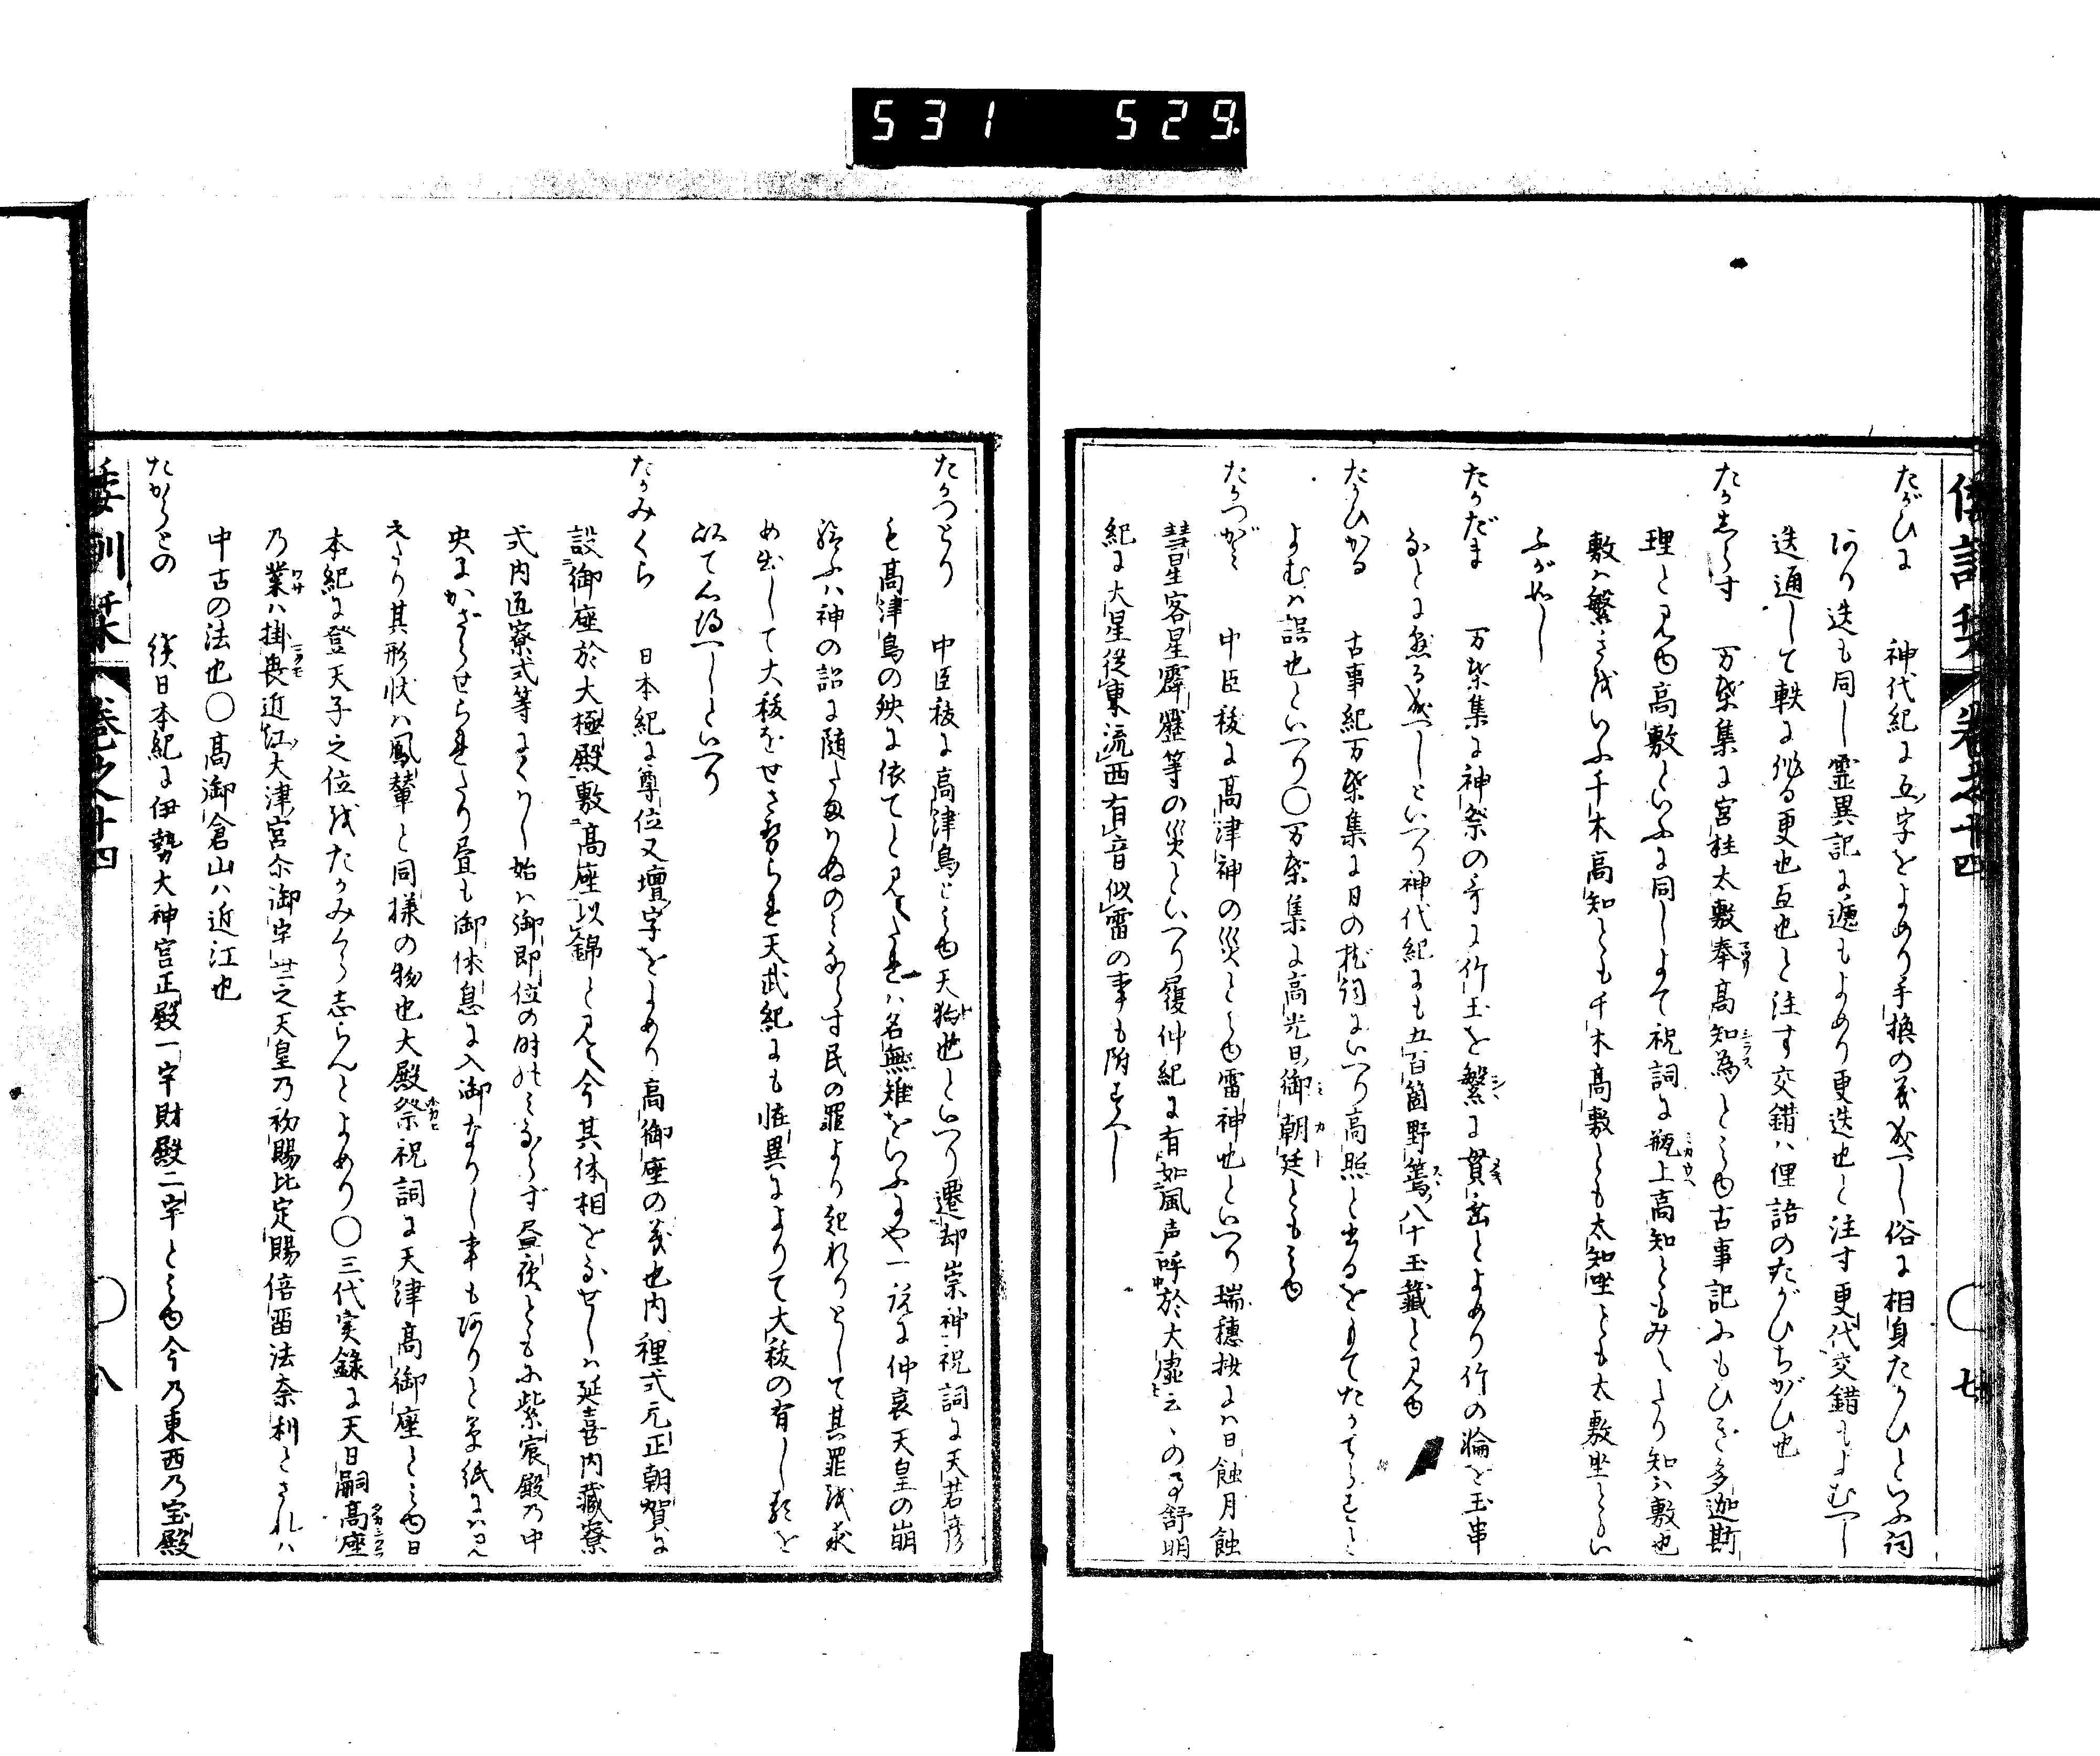 531 529.
倭訓栞 巻之十四 〇 七
たがひに 神代紀に互字をよめり手換の義成へし俗に相身たかひといふ詞
あり迭も同し霊異記に逓もよめり更迭也と注す更代交錯もよむへし
迭通して軼に作る更也互也と注す交錯は俚語のたがひちがひ也
たかしらす 万葉集に宮柱太敷奉高知為とみゆ古事記にもひぎ多迦斯
理と見ゆ高敷といふに同しよて祝詞に瓺上高知ともみえたり知は敷也
敷は繁きをいふ千木高知とも千木高敷とも太知坐とも太敷坐ともい
ふがごとし
たかだま 万葉集に神祭の哥に竹玉を繁に貫垂とよめり竹の輪を玉串
なとに懸る成へしといへり神代紀にも五百箇野篶八十玉籤と見ゆ
たかひかる 古事紀万葉集に日の枕詞にいへり高照と出るをもてたかてらすと
よむは誤也といへり〇万葉集に高光日御朝廷ともみゆ
たかつがみ 中臣祓に高津神の災とみゆ雷神也といへり瑞穂抄には日蝕月蝕
彗星客星霹靂等の災といへり履仲紀に有如風声呼於大虚云々の事舒明
紀に大星従東流西有音似雷の事も附すへし
たかつとり 中臣祓に高津鳥とみゆ天狗也といへり遷却崇神祝詞に天若彦
も高津鳥の殃に依てと見えたれは名無雉をいふにや一説に仲哀天皇の崩
給ふは神の詔に随たまはぬのみならす民の罪より起れりとして其罪を求
め出して大祓をせさせられ天武紀にも怪異によりて大祓の有し類を
以てみ得へしといへり
たかみくら 日本紀に尊位又壇字をよめり高御座の義也内裡式元正朝賀に
設御座於大極殿敷高座以錦と見ゆ今其体相をなせしは延喜内蔵寮
式内匠寮式等にくはし始は御即位の時のみならず昼夜ともに紫宸殿の中
央にかざらせられたり畳も御休息に入御なりし事もありと草紙には見
えたり其形状は鳳輦と同様の物也大殿祭祝詞に天津高御座とみゆ日
本紀に登天子之位をたかみくら志らんとよめり〇三代実録に天日嗣高座
乃業は掛畏近江大津宮尓御宇世之天皇乃初賜比定賜倍留法奈利とされは
中古の法也〇高御倉山は近江也
たからとの 続日本紀に伊勢大神宮正殿一宇財殿二宇とみゆ今乃東西乃宝殿
倭訓栞 巻之十四 〇 八